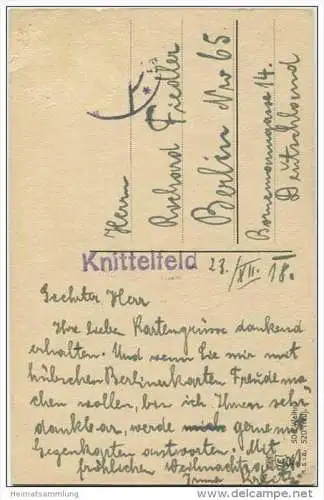 Herrn
Richard Fiedler
Berlin Nw 65.
Bornemanngasse 14.
Deutschland
Knittelfeld
23./XII. 18.
Geehrter Herr
Ihre lieben Kartengrüsse dankend
erhalten. Und wenn Sie mir mit
hübschen Berlinerkarten Freude ma
chen wollen, bin ich Ihnen sehr
dankbar, werde gerne mit
Gegenkarten antworten. Mit
fröhlichen Weihnachtsgruss
Irma
Heimatsammlung
www.delcampe.net